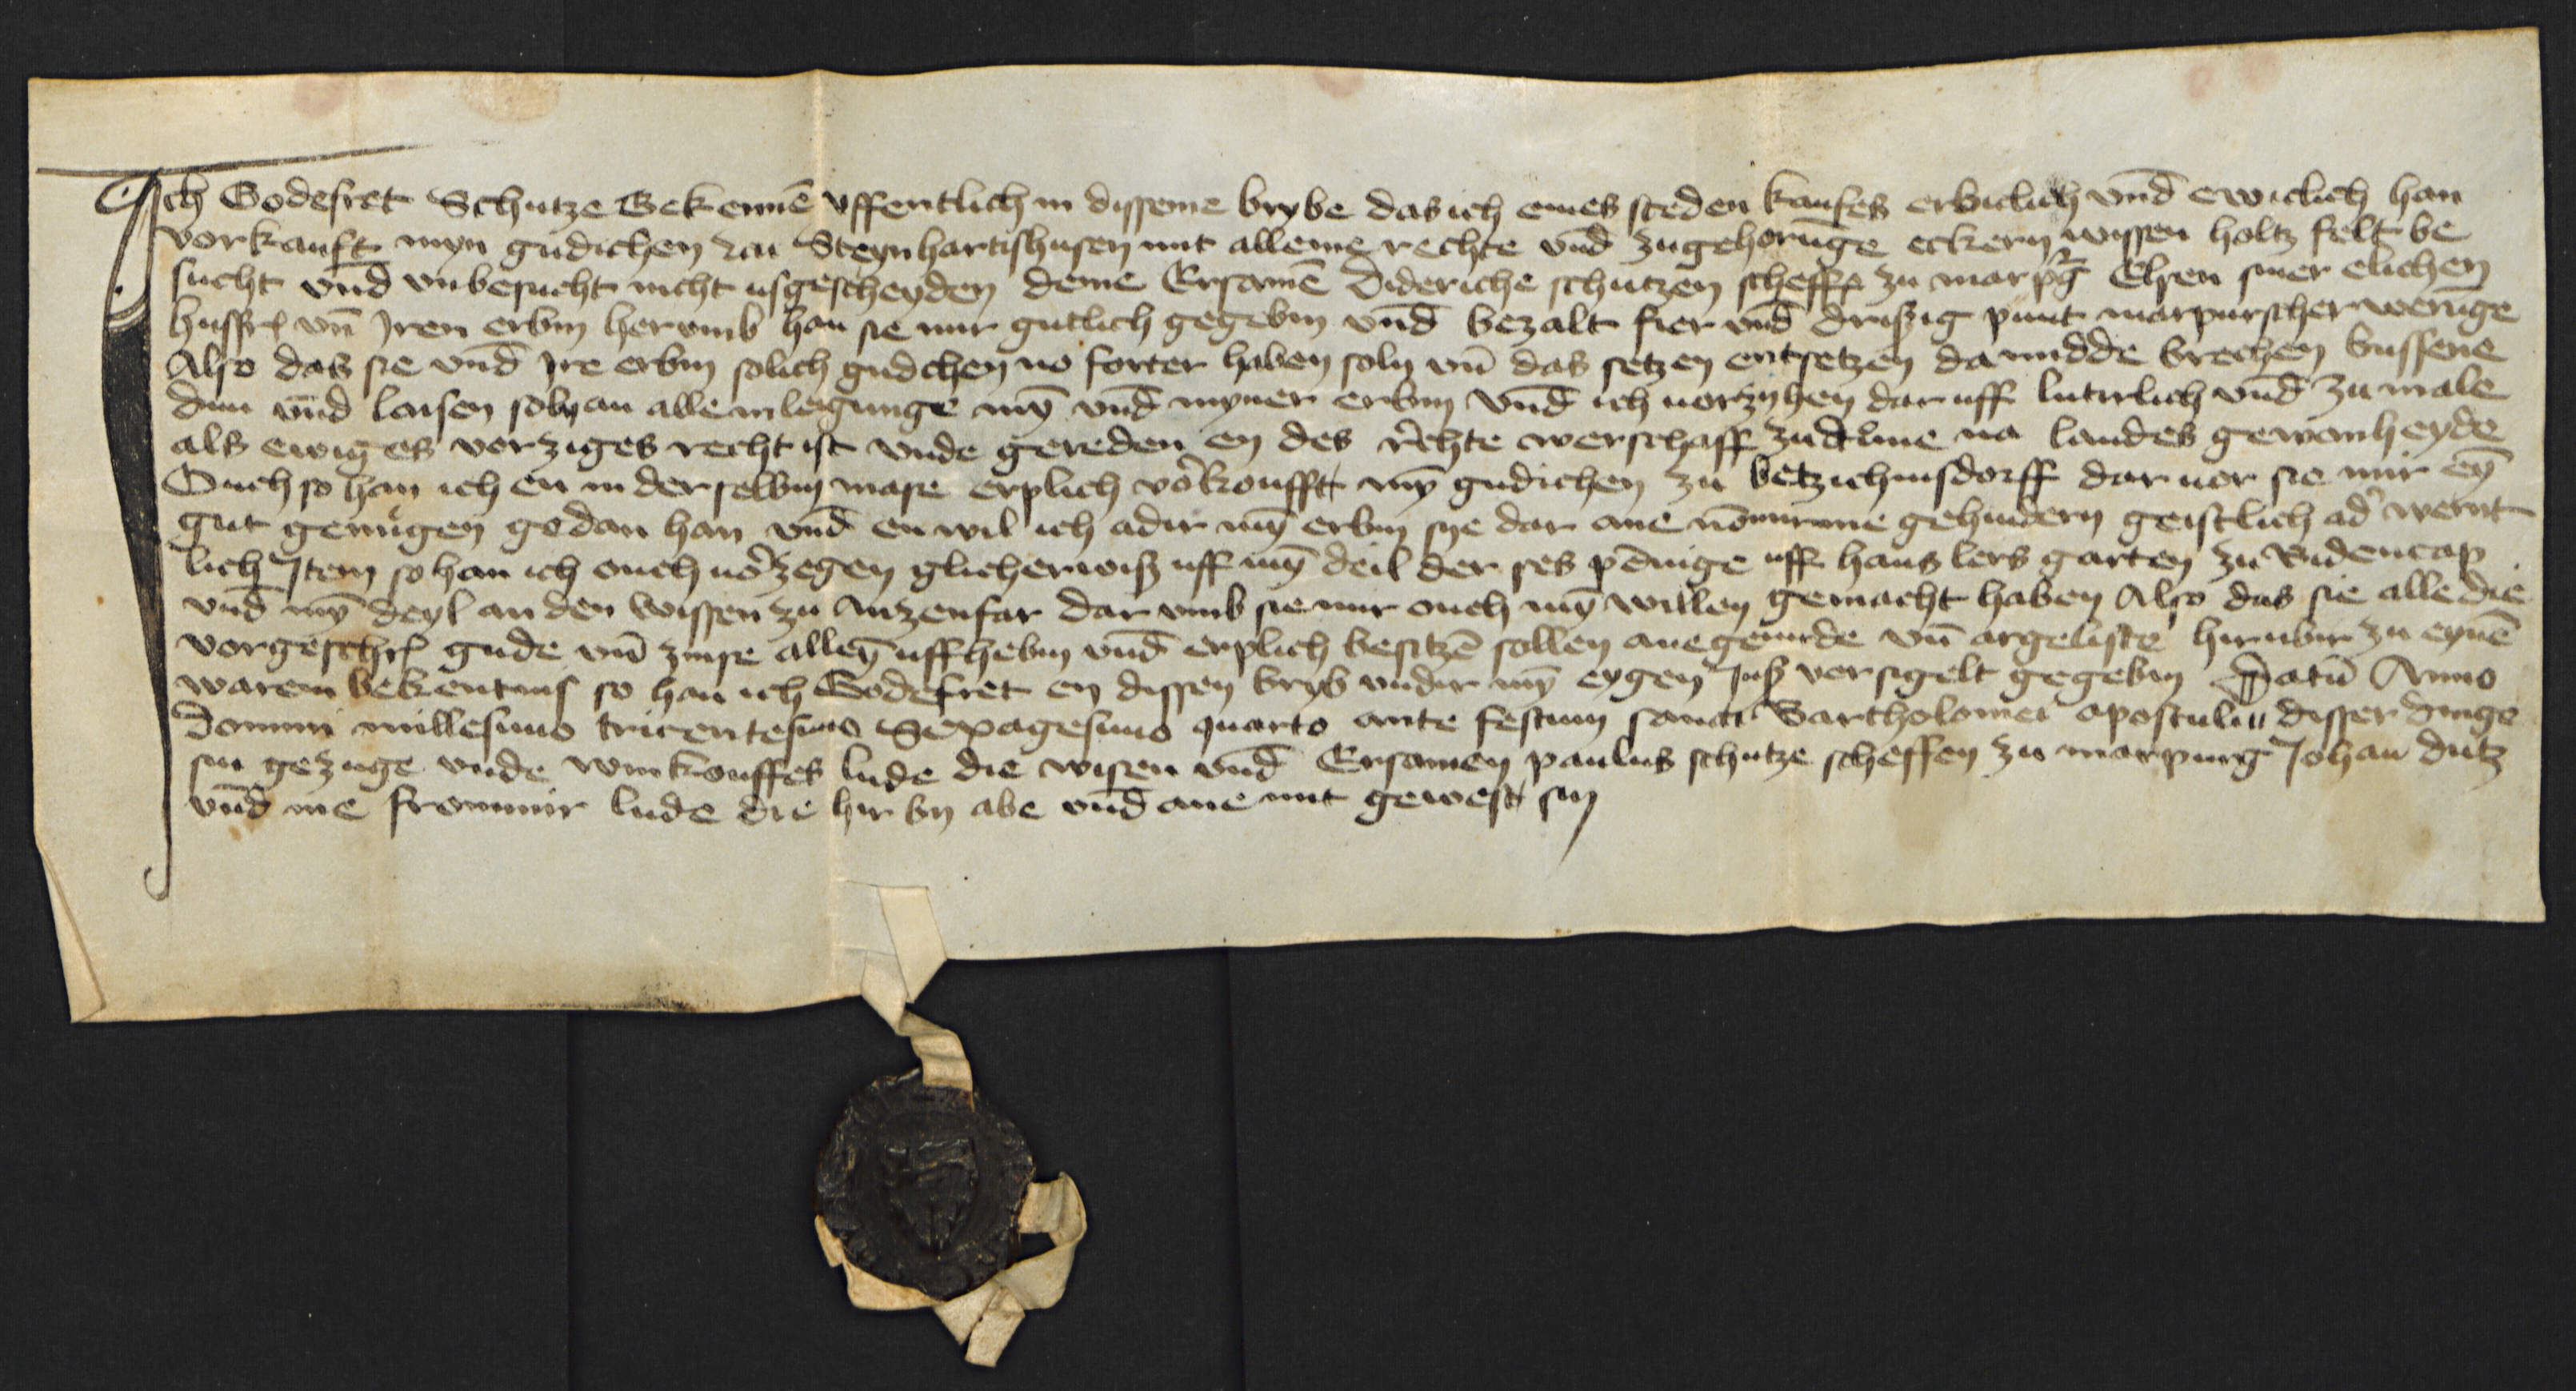 Ich Godefret Schutze Bekennē uffentlich in disseme brybe das ich eines steden kaufes erbiclich vnd̄ ewiclich han
vorkauft myn gudichen zu Steynhartishusen mit alleme rechte vnd̄ zugehorūge eckern wissen holtz felt be
sucht vnd̄ vnbesucht nicht usgescheyden deme Ersamē Diderriche schutzen scheffē zu marpg Elsen siner elichen
hussfr vn̄ Jren erbin her vmb han sie mir gutlich gegebin vnd̄ bezalt fier vnd̄ drißig punt marpurscher werūge
Also das sie vnd̄ Jre erbin solich gudchen no forter haben soln vn̄ das setzen entsetzen da midde brechen bussene
dun vnd̄ laisen soln an alle inleigunge myn̄ vnd̄ myner erbin vnd̄ ich uorzyhen dar uff luterlich vnd̄ zu male
als ewiges verziges recht ist vnde gereden en des rechte werschaff zu dune na landes gewanheyde
Ouch so han ich en in der selbin mase erplich vorkoufft myn̄ gudichen zu betzichinsdorff dar uor sie mir eyn̄
gut genugen gedan han vnd̄ en wil ich adir myn̄ erbin sye dar ane nōmirme gehindern geistlich ad wernt
lich Jtem so han ich ouch uorzegen glicherwiß uff myn̄ deil der ses pēnige uff hans lers garten zu Bidencap
vnd̄ myn̄ deyl an den wissen zu Anzenfar dar vmb sie mir ouch myn̄ willen gemacht haben Also das sie alle die
vorgeschr gude vn̄ zinse alleyn̄ uffhebin vnd̄ erplich besitzē sollen ane geuirde vn̄ argeliste hir ubir zu eynē
warem bekentnis so han ich Godefret en dissen bryb vndir myn̄ eygen Jnß versigelt gegebin Datū Anno
domini millesimo tricentesimo Sexagesimo quarto ante festum sancti Bartholomei apostuli disser dinge
sin gezuge vnde winkouffes lude die wisen vnd̄ Ersamen paulus schutze scheffen zu marpurg Johan dutz
vnd̄ me frommir lude die hir by abe vnd̄ ane mit gewest sin